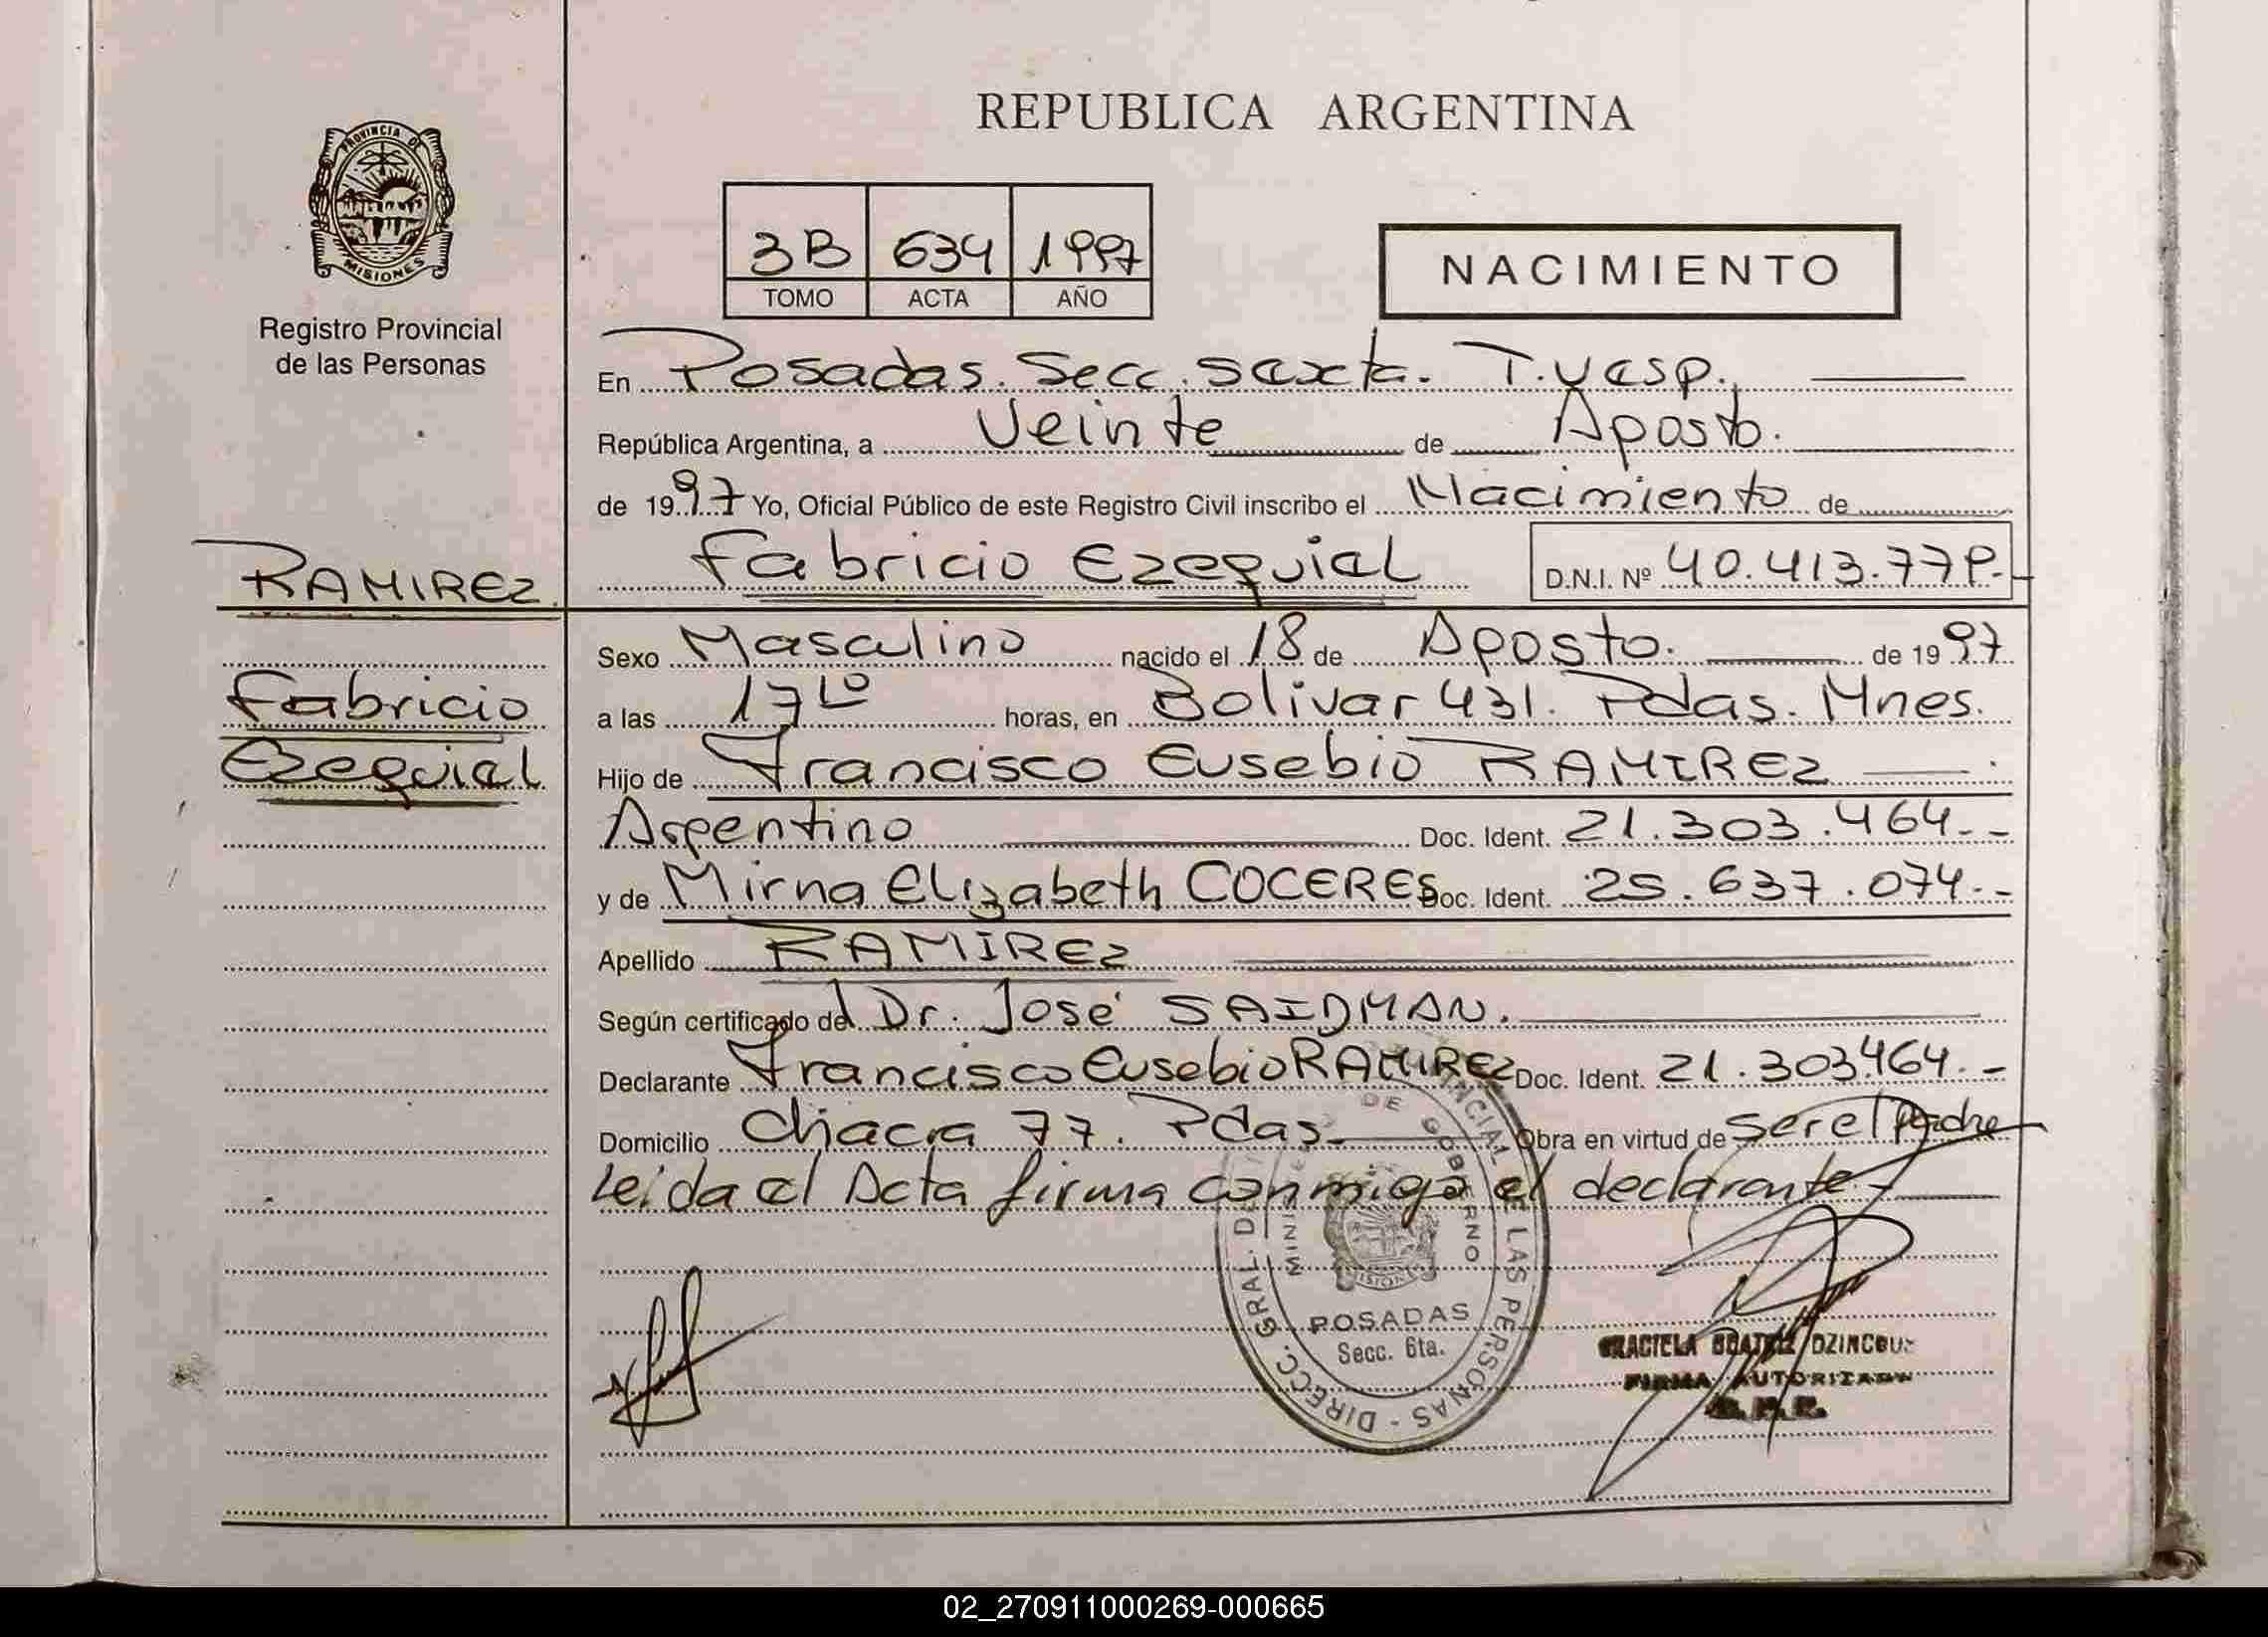 REPUBLICA ARGENTINA
PROVINCIA DE
MISIONES
Registro Provincial
de las Personas
3B 634 1997
TOMO ACTA AÑO
NACIMIENTO
En Posadas. Secc. sexta. T. vesp.
República Argentina, a Veinte de Agosto.
de 1997 Yo, Oficial Público de este Registro Civil inscribo el Nacimiento de
RAMIREZ Fabricio Ezequiel D.N.I. Nº 40.413.779.-
Sexo Masculino nacido el 18 de Agosto. de 1997
Fabricio
a las 17 10 horas, en Bolivar 431. Pdas. Mnes.
Ezequiel
Hijo de Francisco Eusebio RAMIREZ
Argentino Doc. Ident. 21.303.464.--
y de Mirna Elizabeth COCERES Doc. Ident. 25.637.074.--
Apellido RAMIREZ
Según certificado del Dr. José SAIDMAN.
Declarante Francisco Eusebio RAMIREZ Doc. Ident. 21.303.464.-
Domicilio Chacra 77. Pdas. Obra en virtud de ser el Padre
Leida el Acta firma conmigo el declarante-
DE GOBERNO
LAS PERSONAS - DIRECC. GRAL. DEL
POSADAS
Secc. 6ta.
GRACIELA BEATRIZ
FIRMA AUTORIZADA
02_270911000269-000665